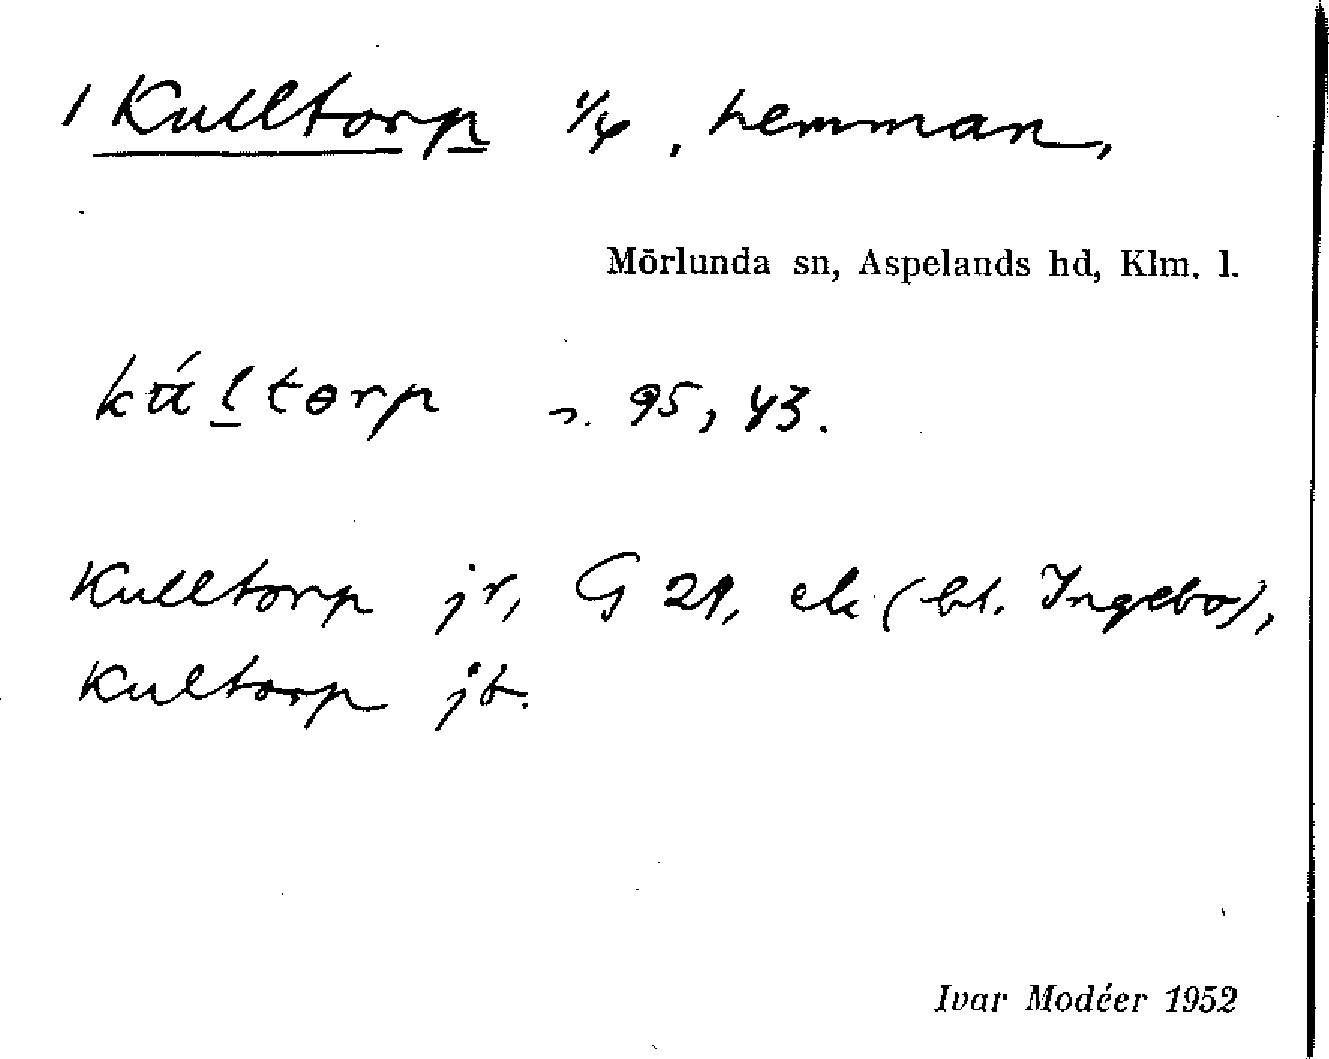 1 Kulltorp 1/4, hemman,
Mörlunda sn, Aspelands hd, Klm. l.
kúltorp 95, 43.
Kulltorp jr, G 29, ek (bl. Ingebo),
Kultorp jb.
Ivar Modéer 1952